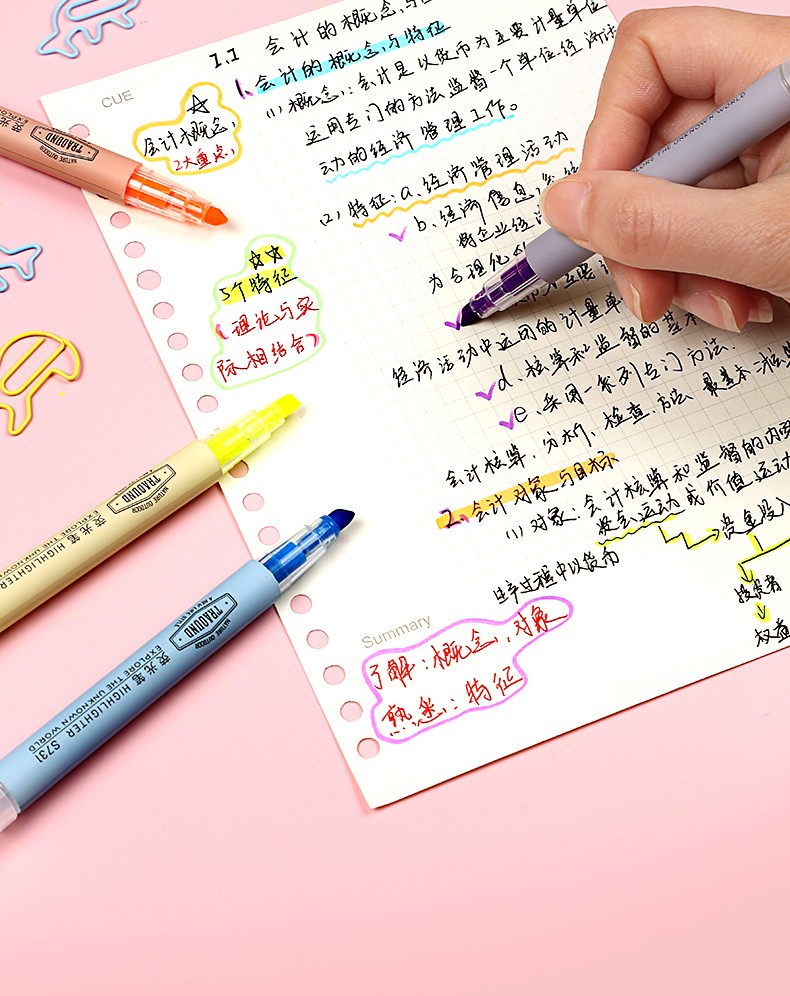 CUE
1.1 会计的概念与
会计概念
2大重点
1、会计的概念与特征
(1) 概念：会计是以货币为主要计量单位
运用专门的方法监督一个单位经济
动的经济管理工作。
(2) 特征：a、经济管理活动
b、经济信息
将企业经济
为合理化
5个特征
(理论与实
际相结合)
经济活动中运用的计量单
d、核算和监督的基本
e、采用一系列专门方法.
会计核算、分析、检查.方法 最基本
2、会计对象与目标
(1) 对象：会计核算和监督的内容
资金运动或价值运动
资金投入
投资者
权益
生产过程中以货币
Summary
了解：概念、对象
熟悉：特征
TRAOUND
NATURE OUTDOOR
TRAOUND
NATURE OUTDOOR
荧光笔 HIGHLIGHTER
EXPLORE THE UNKNOWN
TRAOUND
NATURE OUTDOOR
A NEW LIFE STYLE
荧光笔 HIGHLIGHTER S731
EXPLORE THE UNKNOWN WORLD